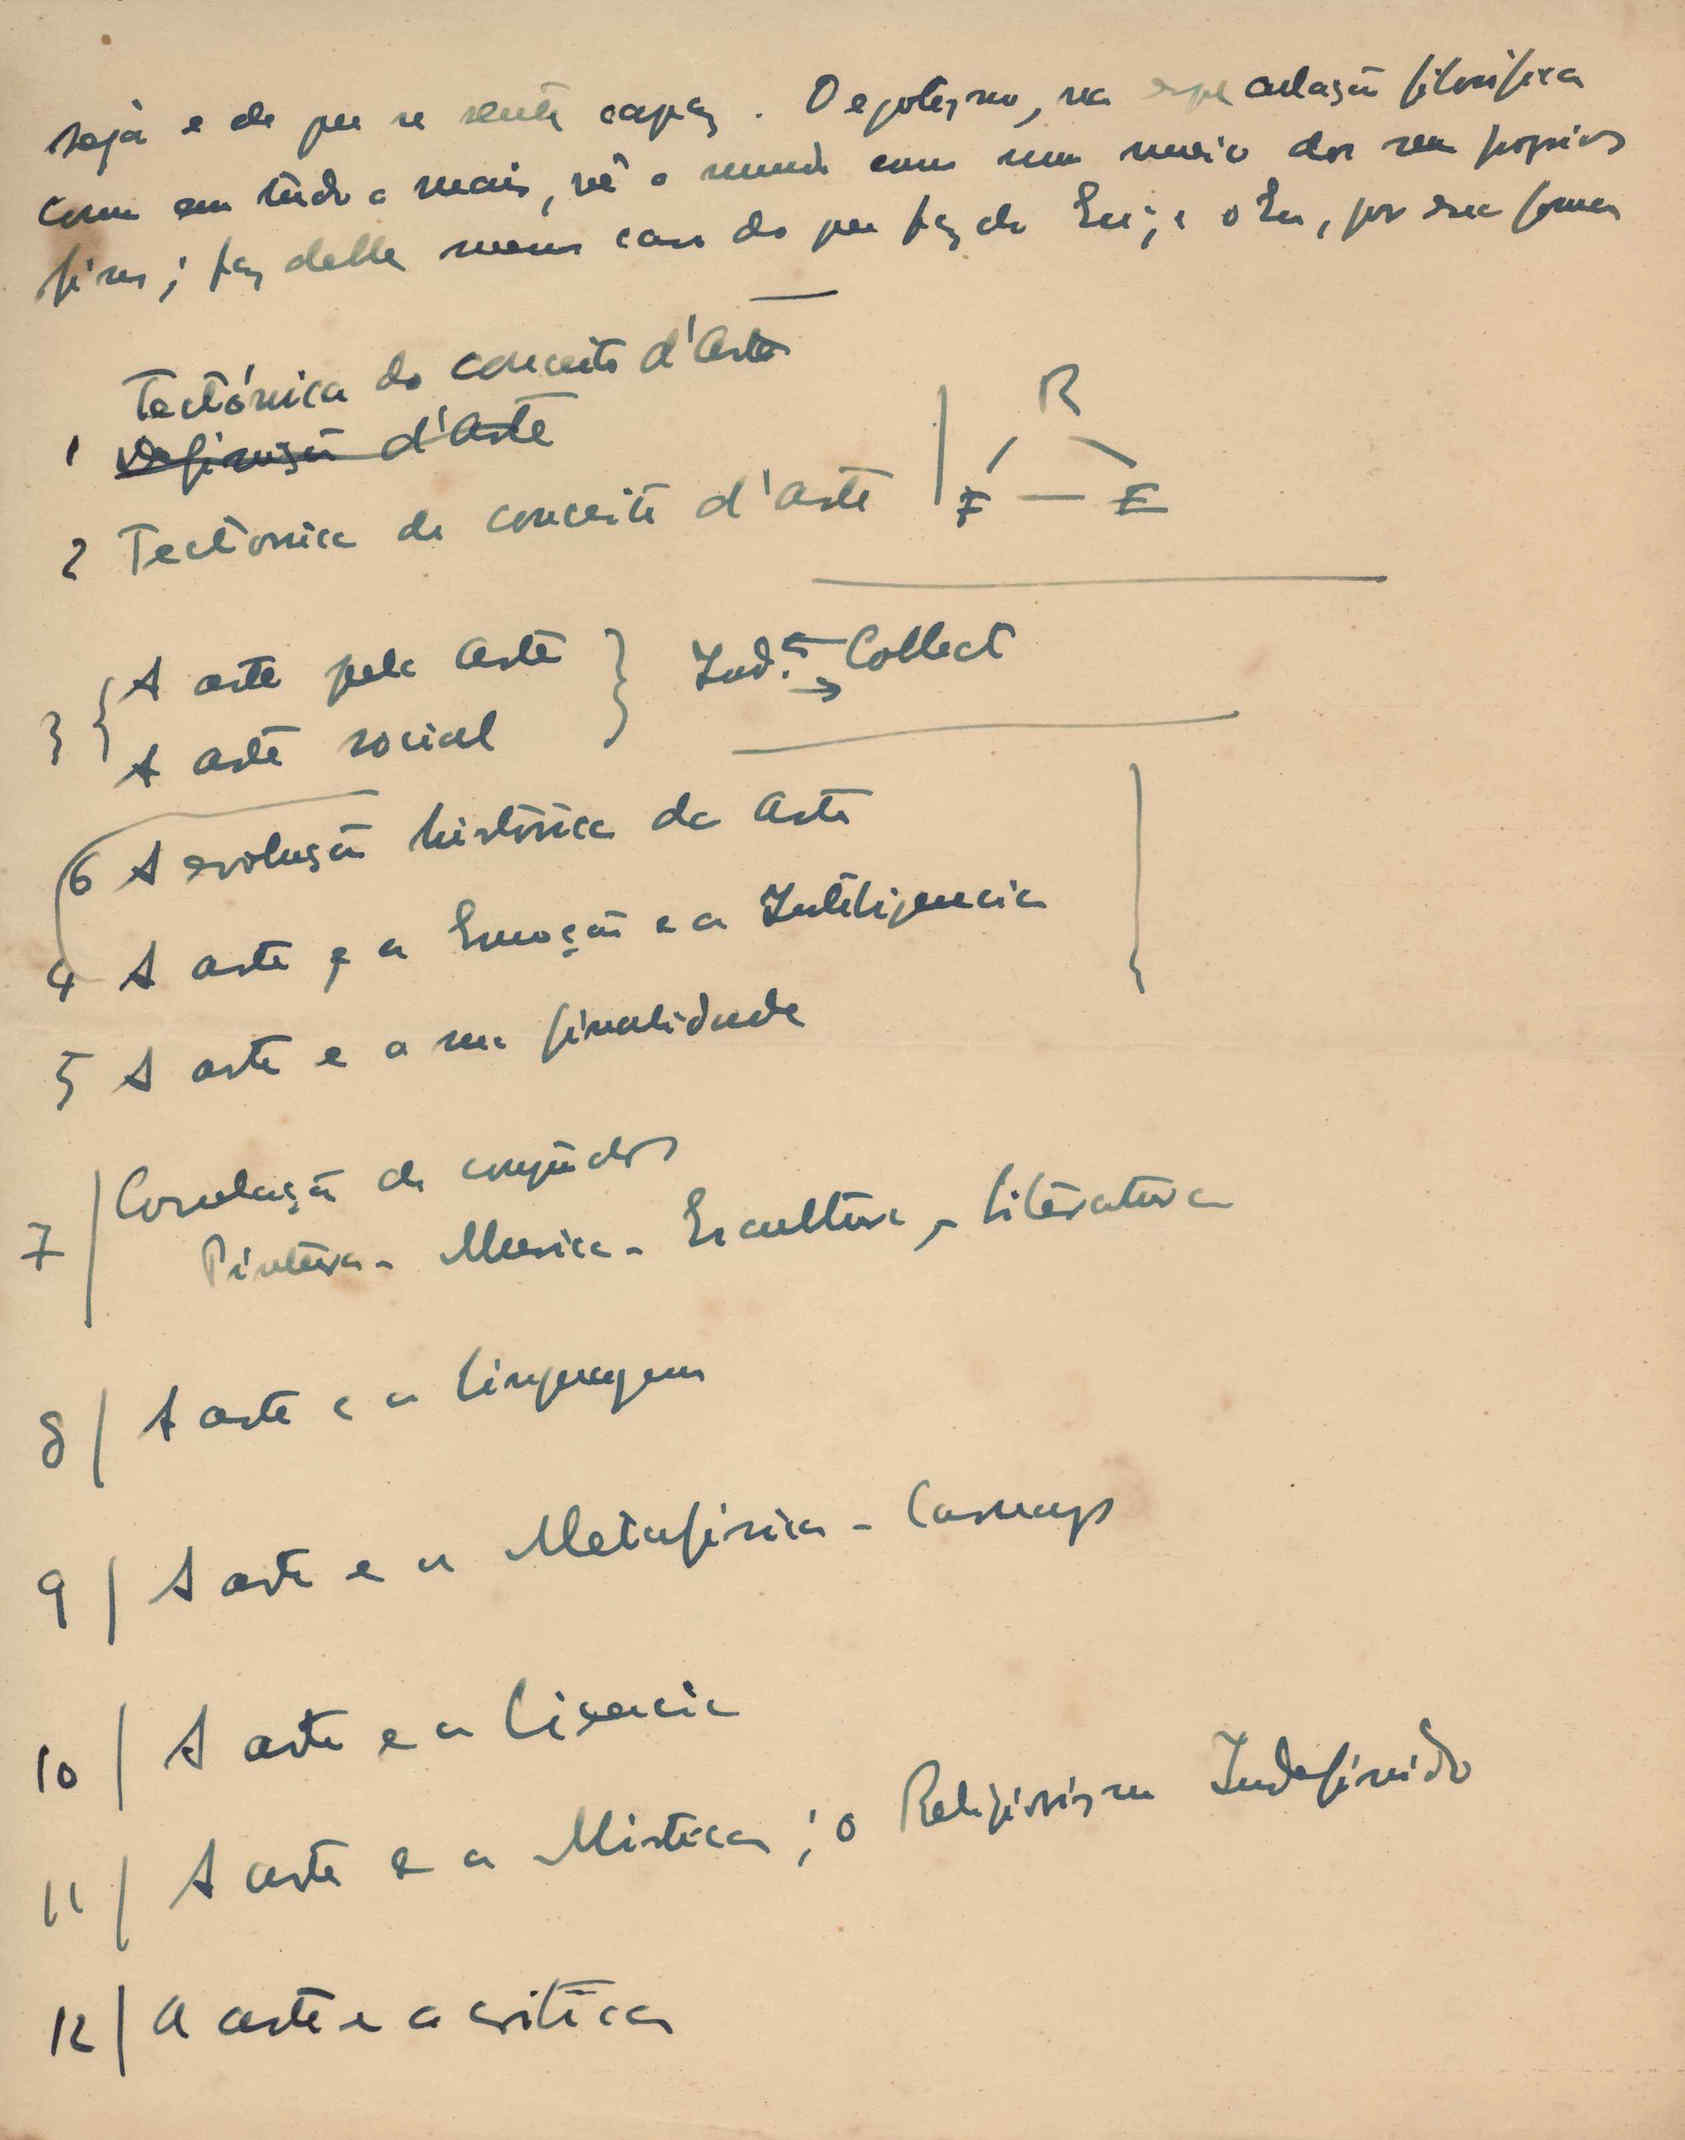 seja e de que se sente capaz. O egotismo, na especulação filosofica
como em tudo o mais, vê o mundo como um meio dos seus proprios
fins; faz delle menos caso do que faz do Eu; e o Eu, por essa forma
Tectónica do conceito d'Arte
1 Definição d'Arte
2 Tectonica do conceito d'arte
R
F — E
3 { A arte pela arte } Ind. Collect
A arte social
6 A evolução histórica da Arte
4 A arte e a Emoção e a Inteligencia
5 A arte e a sua finalidade
7 Correlação de
Pintura - Musica - Escultura - Literatura
8 | A arte e a linguagem
9 | A arte e a Metafisica - Carnap
10 | A arte e a Ciencia
11 | A arte e a Mistica; o Religiosismo Indefinido
12 | A arte e a critica